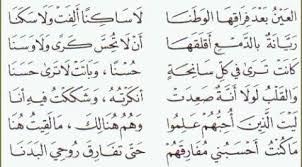 العَيْنُ بَعْدَ فِرَاقِهَا الوَطَنَا لَا سَاكِنًا أَلِفَتْ وَلَا سَكَنَا
رَيَّانَةٌ بِالدَّمْعِ أَقْلَقَهَا أَنْ لَا تُحِسَّ كَرًى وَلَا وَسَنَا
كَانَتْ تَرَى فِي كُلِّ سَانِحَةٍ حُسْنًا، وَبَاتَتْ لَا تَرَى حَسَنَا
وَالقَلْبُ لَوْلَا أَنَّةٌ صَعِدَتْ أَنْكَرْتُهُ، وَشَكَكْتُ فِيهِ أَنَا
لَيْتَ الَّذِينَ أُحِبُّهُمْ عَلِمُوا وَهُمُ هُنَالِكَ، مَا لَقِيتُ هُنَا
مَا كُنْتُ أَحْسَبُنِي مُفَارِقَهُمْ حَتَّى تُفَارِقَ رُوحِيَ البَدَنَا